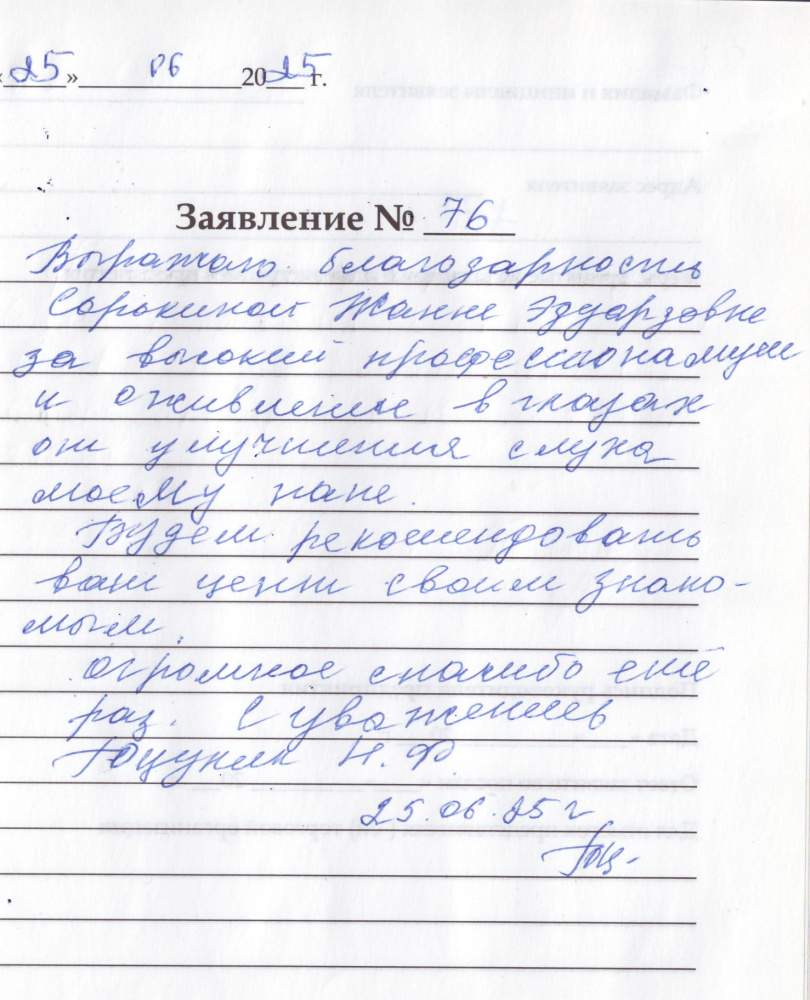 «25» 06 2025 г.
Заявление № 76
Выражаю благодарность
Сорокиной Жанне Эдуардовне
за высокий профессионализм
и оживление в глазах
от улучшения слуха
моему папе.
Будем рекомендовать
ваш центр своим знако-
мым.
огромное спасибо ещё
раз. С уважением
Н.Ф
25.06.25 г